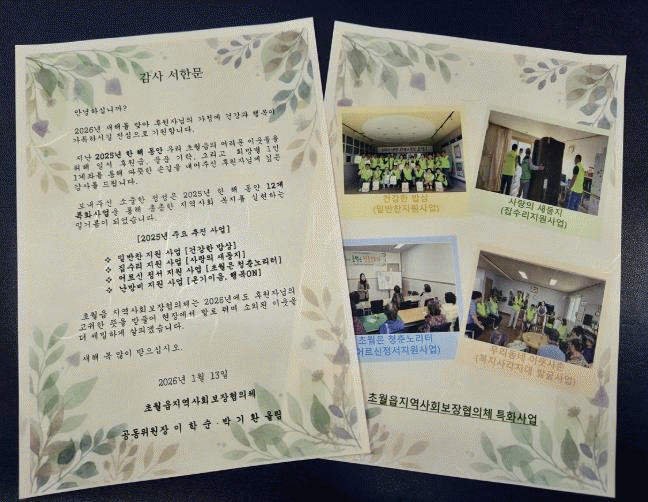 감사 서한문
안녕하십니까?
2026년 새해를 맞아 후원자님의 가정에 건강과 행복이
가득하시길 진심으로 기원합니다.
지난 2025년 한 해 동안 우리 초월읍의 어려운 이웃들을
위해 일시 후원금, 물품 기탁, 그리고 희망별 1인
1계좌를 통해 따뜻한 손길을 내어주신 후원자님께 깊은
감사를 드립니다.
보내주신 소중한 정성은 2025년 한 해 동안 12개
특화사업을 통해 촘촘한 지역사회 복지를 실현하는
밑거름이 되었습니다.
[2025년 주요 추진 사업]
❖ 밑반찬 지원 사업 [건강한 밥상]
❖ 집수리 지원 사업 [사랑의 새둥지]
❖ 어르신 정서 지원 사업 [초월은 청춘노리터]
❖ 난방비 지원 사업 [온기이음, 행복ON]
초월읍 지역사회보장협의체는 2026년에도 후원자님의
고귀한 뜻을 받들어 현장에서 발로 뛰며 소외된 이웃을
더 세밀하게 살피겠습니다.
새해 복 많이 받으십시오.
2026년 1월 13일
초월읍지역사회보장협의체
공동위원장 이학순·박기환 올림
건강한 밥상
(밑반찬지원사업)
사랑의 새둥지
(집수리지원사업)
초월은 청춘노리터
(어르신정서지원사업)
우리동네 이웃사촌
(복지사각지대 발굴사업)
초월읍지역사회보장협의체 특화사업